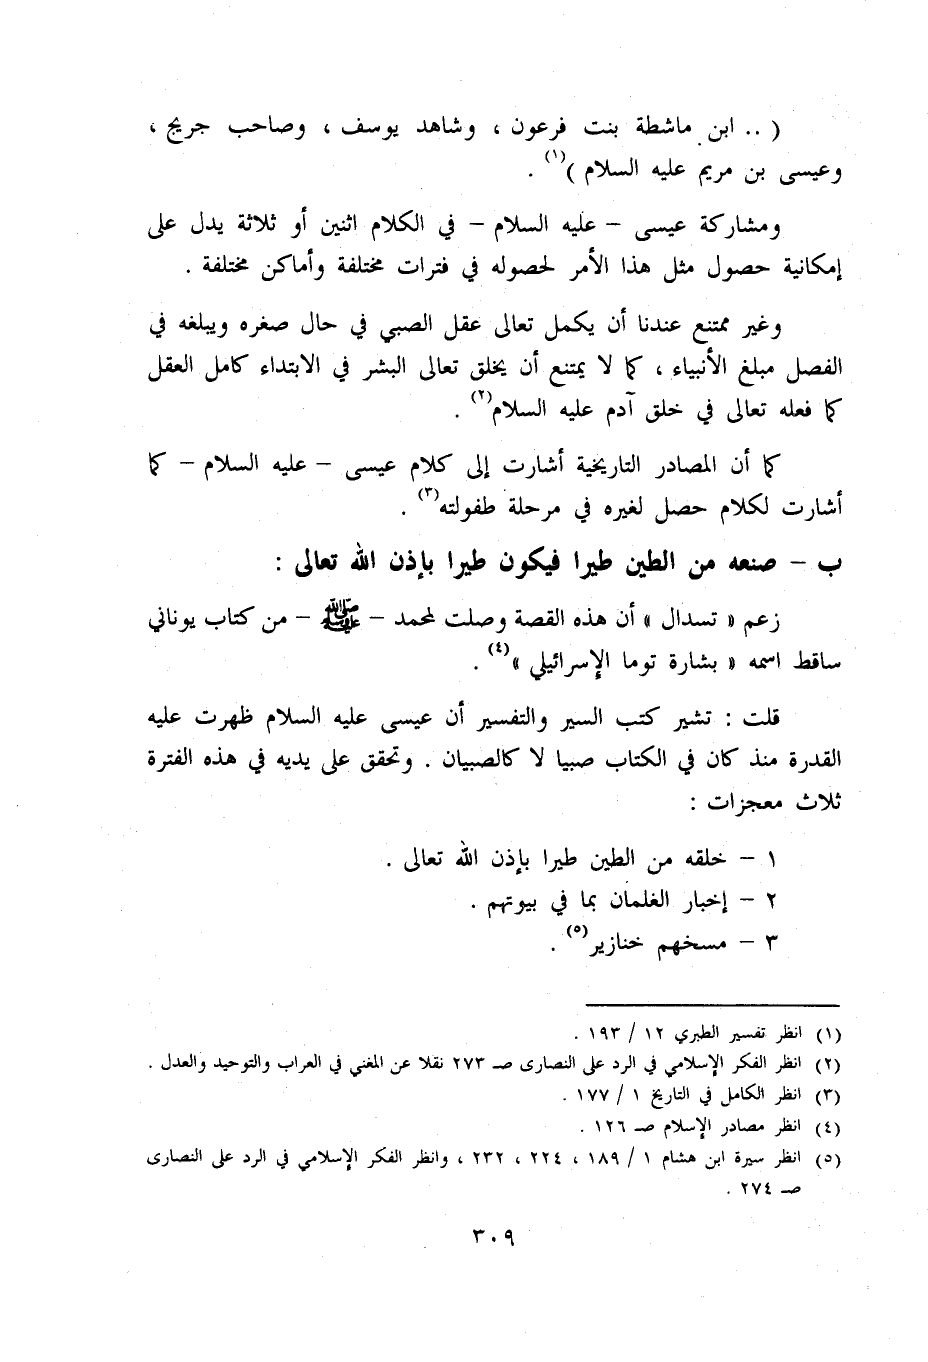 ( .. ابن ماشطة بنت فرعون ، وشاهد يوسف ، وصاحب جريج ،
وعيسى بن مريم عليه السلام )(١) .
ومشاركة عيسى – عليه السلام – في الكلام اثنين أو ثلاثة يدل على
إمكانية حصول مثل هذا الأمر لحصوله في فترات مختلفة وأماكن مختلفة .
وغير ممتنع عندنا أن يكمل تعالى عقل الصبي في حال صغره ويبلغه في
الفصل مبلغ الأنبياء ، كما لا يمتنع أن يخلق تعالى البشر في الابتداء كامل العقل
كما فعله تعالى في خلق آدم عليه السلام(٢) .
كما أن المصادر التاريخية أشارت إلى كلام عيسى – عليه السلام – كما
أشارت لكلام حصل لغيره في مرحلة طفولته(٣) .
ب – صنعه من الطين طيرا فيكون طيرا بإذن الله تعالى :
زعم « تسدال » أن هذه القصة وصلت لمحمد – ﷺ – من كتاب يوناني
ساقط اسمه « بشارة توما الإسرائيلي »(٤) .
قلت : تشير كتب السير والتفسير أن عيسى عليه السلام ظهرت عليه
القدرة منذ كان في الكتاب صبيا لا كالصبيان . وتحقق على يديه في هذه الفترة
ثلاث معجزات :
١ – خلقه من الطين طيرا بإذن الله تعالى .
٢ – إخبار الغلمان بما في بيوتهم .
٣ – مسخهم خنازير(٥) .
(١) انظر تفسير الطبري ١٢ / ١٩٣ .
(٢) انظر الفكر الإسلامي في الرد على النصارى صـ ٢٧٣ نقلا عن المغني في العراب والتوحيد والعدل .
(٣) انظر الكامل في التاريخ ١ / ١٧٧ .
(٤) انظر مصادر الإسلام صـ ١٢٦ .
(٥) انظر سيرة ابن هشام ١ / ١٨٩ ، ٢٢٤ ، ٢٣٢ ، وانظر الفكر الإسلامي في الرد على النصارى
صـ ٢٧٤ .
٣٠٩